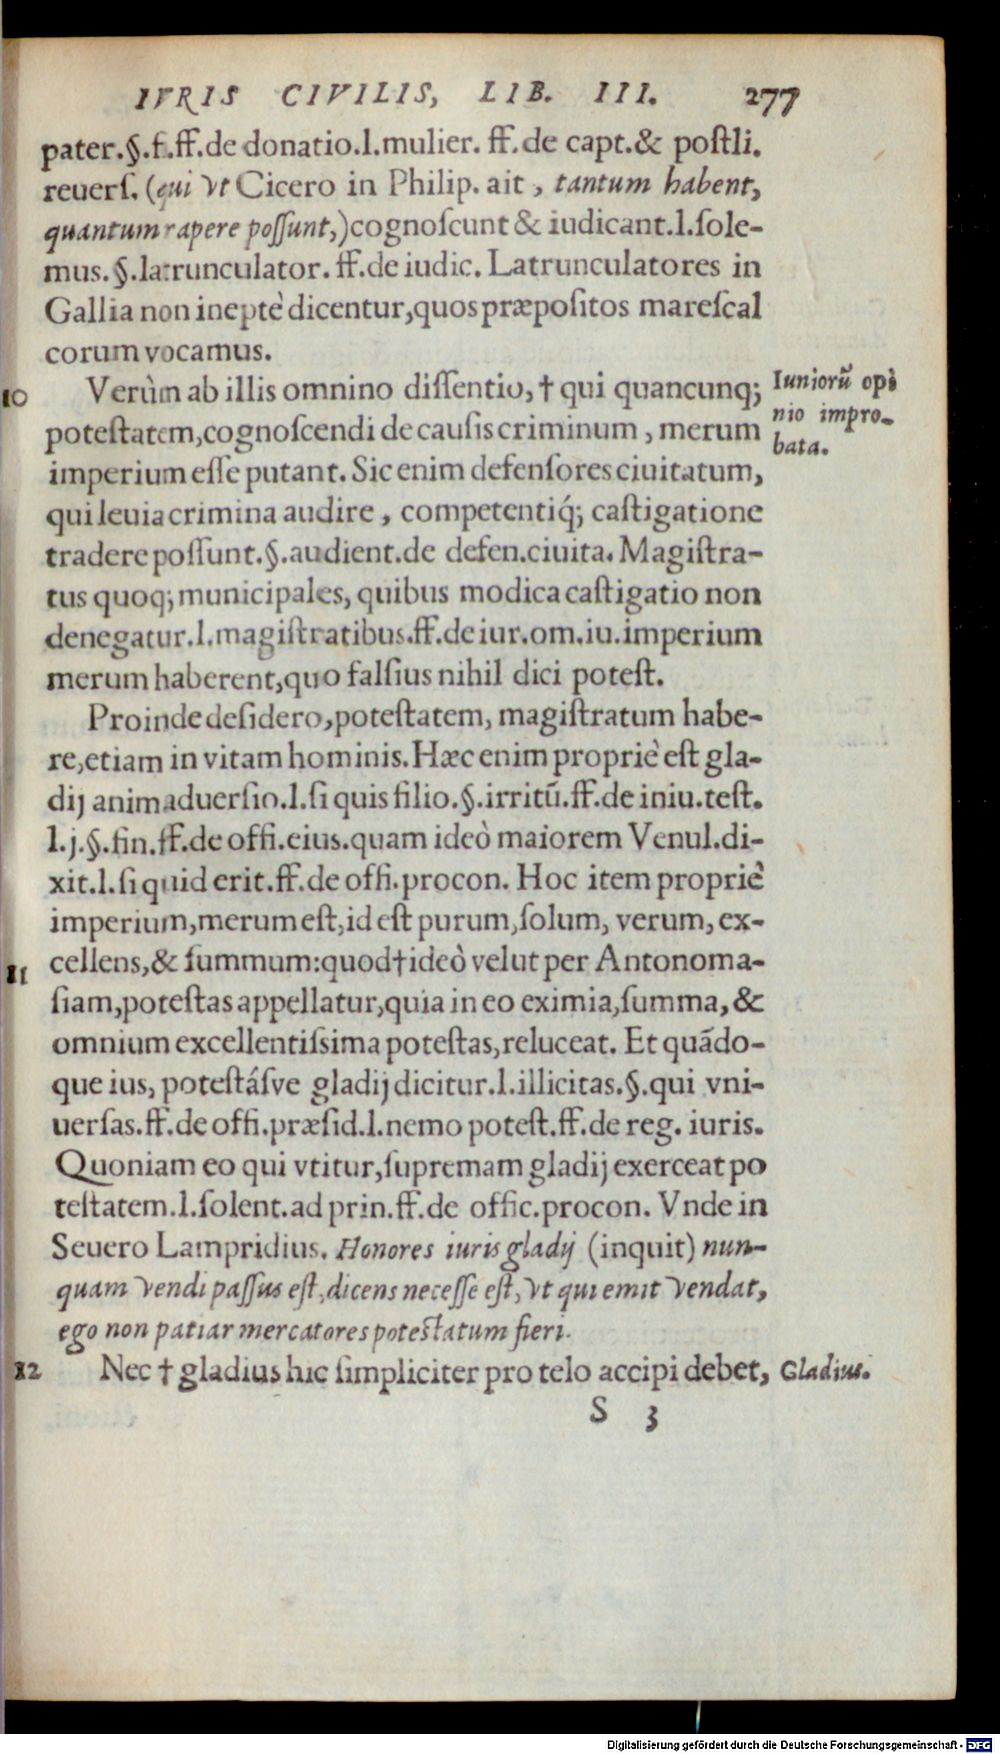 IVRIS CIVILIS, LIB. III. 277
pater.§.f.ff.de donatio.l.mulier. ff.de capt.& poſtli.
reuerſ. (qui vt Cicero in Philip. ait, tantum habent,
quantum rapere poſſunt,) cognoſcunt & iudicant.l.ſole-
mus.§.latrunculator. ff.de iudic. Latrunculatores in
Gallia non ineptè dicentur, quos præpoſitos mareſcal
corum vocamus.
10 Verùm ab illis omnino diſſentio, † qui quancunq; Iuniorũ opi
poteſtatem, cognoſcendi de cauſis criminum, merum nio impro-
imperium eſſe putant. Sic enim defenſores ciuitatum, bata.
qui leuia crimina audire, competentiq́; caſtigatione
tradere poſſunt.§.audient.de defen.ciuita. Magiſtra-
tus quoq; municipales, quibus modica caſtigatio non
denegatur.l.magiſtratibus.ff.de iur.om.iu.imperium
merum haberent, quo falſius nihil dici poteſt.
Proinde deſidero, poteſtatem, magiſtratum habe-
re, etiam in vitam hominis. Hæc enim propriè eſt gla-
dij animaduerſio.l.ſi quis filio.§.irritũ.ff.de iniu.teſt.
l.j.§.fin.ff.de offi.eius.quam ideò maiorem Venul.di-
xit.l.ſi quid erit.ff.de offi.procon. Hoc item propriè
imperium, merum eſt, id eſt purum, ſolum, verum, ex-
11 cellens, & ſummum: quod † ideò velut per Antonoma-
ſiam, poteſtas appellatur, quia in eo eximia, ſumma, &
omnium excellentiſsima poteſtas, reluceat. Et quãdo-
que ius, poteſtáſve gladij dicitur.l.illicitas.§.qui vni-
uerſas.ff.de offi.præſid.l.nemo poteſt.ff.de reg. iuris.
Quoniam eo qui vtitur, ſupremam gladij exerceat po
teſtatem.l.ſolent.ad prin.ff.de offic.procon. Vnde in
Seuero Lampridius. Honores iuris gladij (inquit) nun-
quam vendi paſſus eſt, dicens neceſſe eſt, vt qui emit vendat,
ego non patiar mercatores poteſtatum fieri.
12 Nec † gladius hic ſimpliciter pro telo accipi debet, Gladius.
S 3
Digitalisierung gefördert durch die Deutsche Forschungsgemeinschaft - DFG